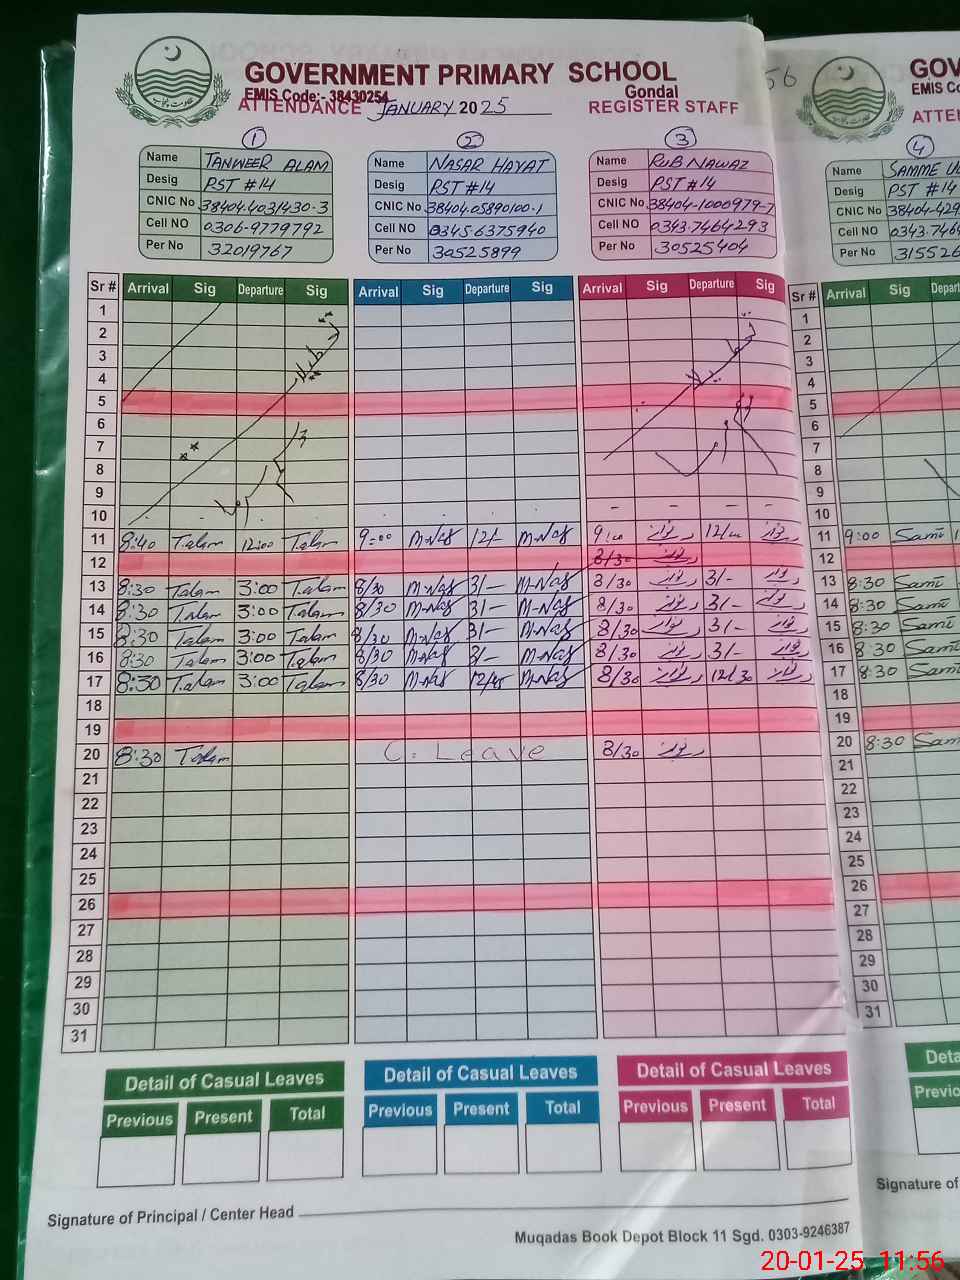 GOVERNMENT PRIMARY SCHOOL
EMIS Code:- 38430254 Gondal
ATTENDANCE JANUARY 2025 REGISTER STAFF
56
GOVERNMENT
EMIS Co
ATTE
1 2 3 4
Name TANWEER ALAM
Desig PST #14
CNIC No 38404-4031430-3
Cell NO 0306-9779792
Per No 32019767
Name NASAR HAYAT
Desig PST #14
CNIC No 38404.05890100-1
Cell NO 0345 6375940
Per No 30525899
Name RUB NAWAZ
Desig PST #14
CNIC No 38404-1000979-7
Cell NO 0343.7464293
Per No 30525404
Name SAMME U
Desig PST #14
CNIC No 38404-429
Cell NO 0343.746
Per No 315526
Sr # Arrival Sig Departure Sig Arrival Sig Departure Sig Arrival Sig Departure Sig Sr # Arrival Sig Depart
1 1
2 2
3 3
4 4
5 5
6 6
7 7
8 8
9 9
10 - - - - 10
11 8:40 T.alam 12:00 T.alam 9:00 M.Nas 12/- M.Nas 9:00 12/00 11 9:00 Sami 1
12 8/30 12
13 8:30 Talam 3:00 T.alam 8/30 M-Nas 3/- M-Nas 8/30 3/- 13 8:30 Sami
14 8:30 T.alam 3:00 Talam 8/30 M-Nas 3/- M-Nas 8/30 3/- 14 8:30 Sami
15 8:30 Talam 3:00 Talam 8/30 M-Nas 3/- M-Nas 8/30 3/- 15 8:30 Sami
16 8:30 Talam 3:00 Talam 8/30 M-Nas 3/- M-Nas 8/30 3/- 16 8:30 Sami
17 8:30 T.alam 3:00 Talam 8/30 M-Nas 12/45 M-Nas 8/30 12/30 17 8:30 Sami
18 18
19 19
20 8:30 Talam C. Leave 8/30 20 8:30 Sam
21 21
22 22
23 23
24 24
25 25
26 26
27 27
28 28
29 29
30 30
31 31
Detail of Casual Leaves Detail of Casual Leaves Detail of Casual Leaves Deta
Previous Present Total Previous Present Total Previous Present Total Previo
Signature of Principal / Center Head
Signature of
Muqadas Book Depot Block 11 Sgd. 0303-9246387
20-01-25 11:56